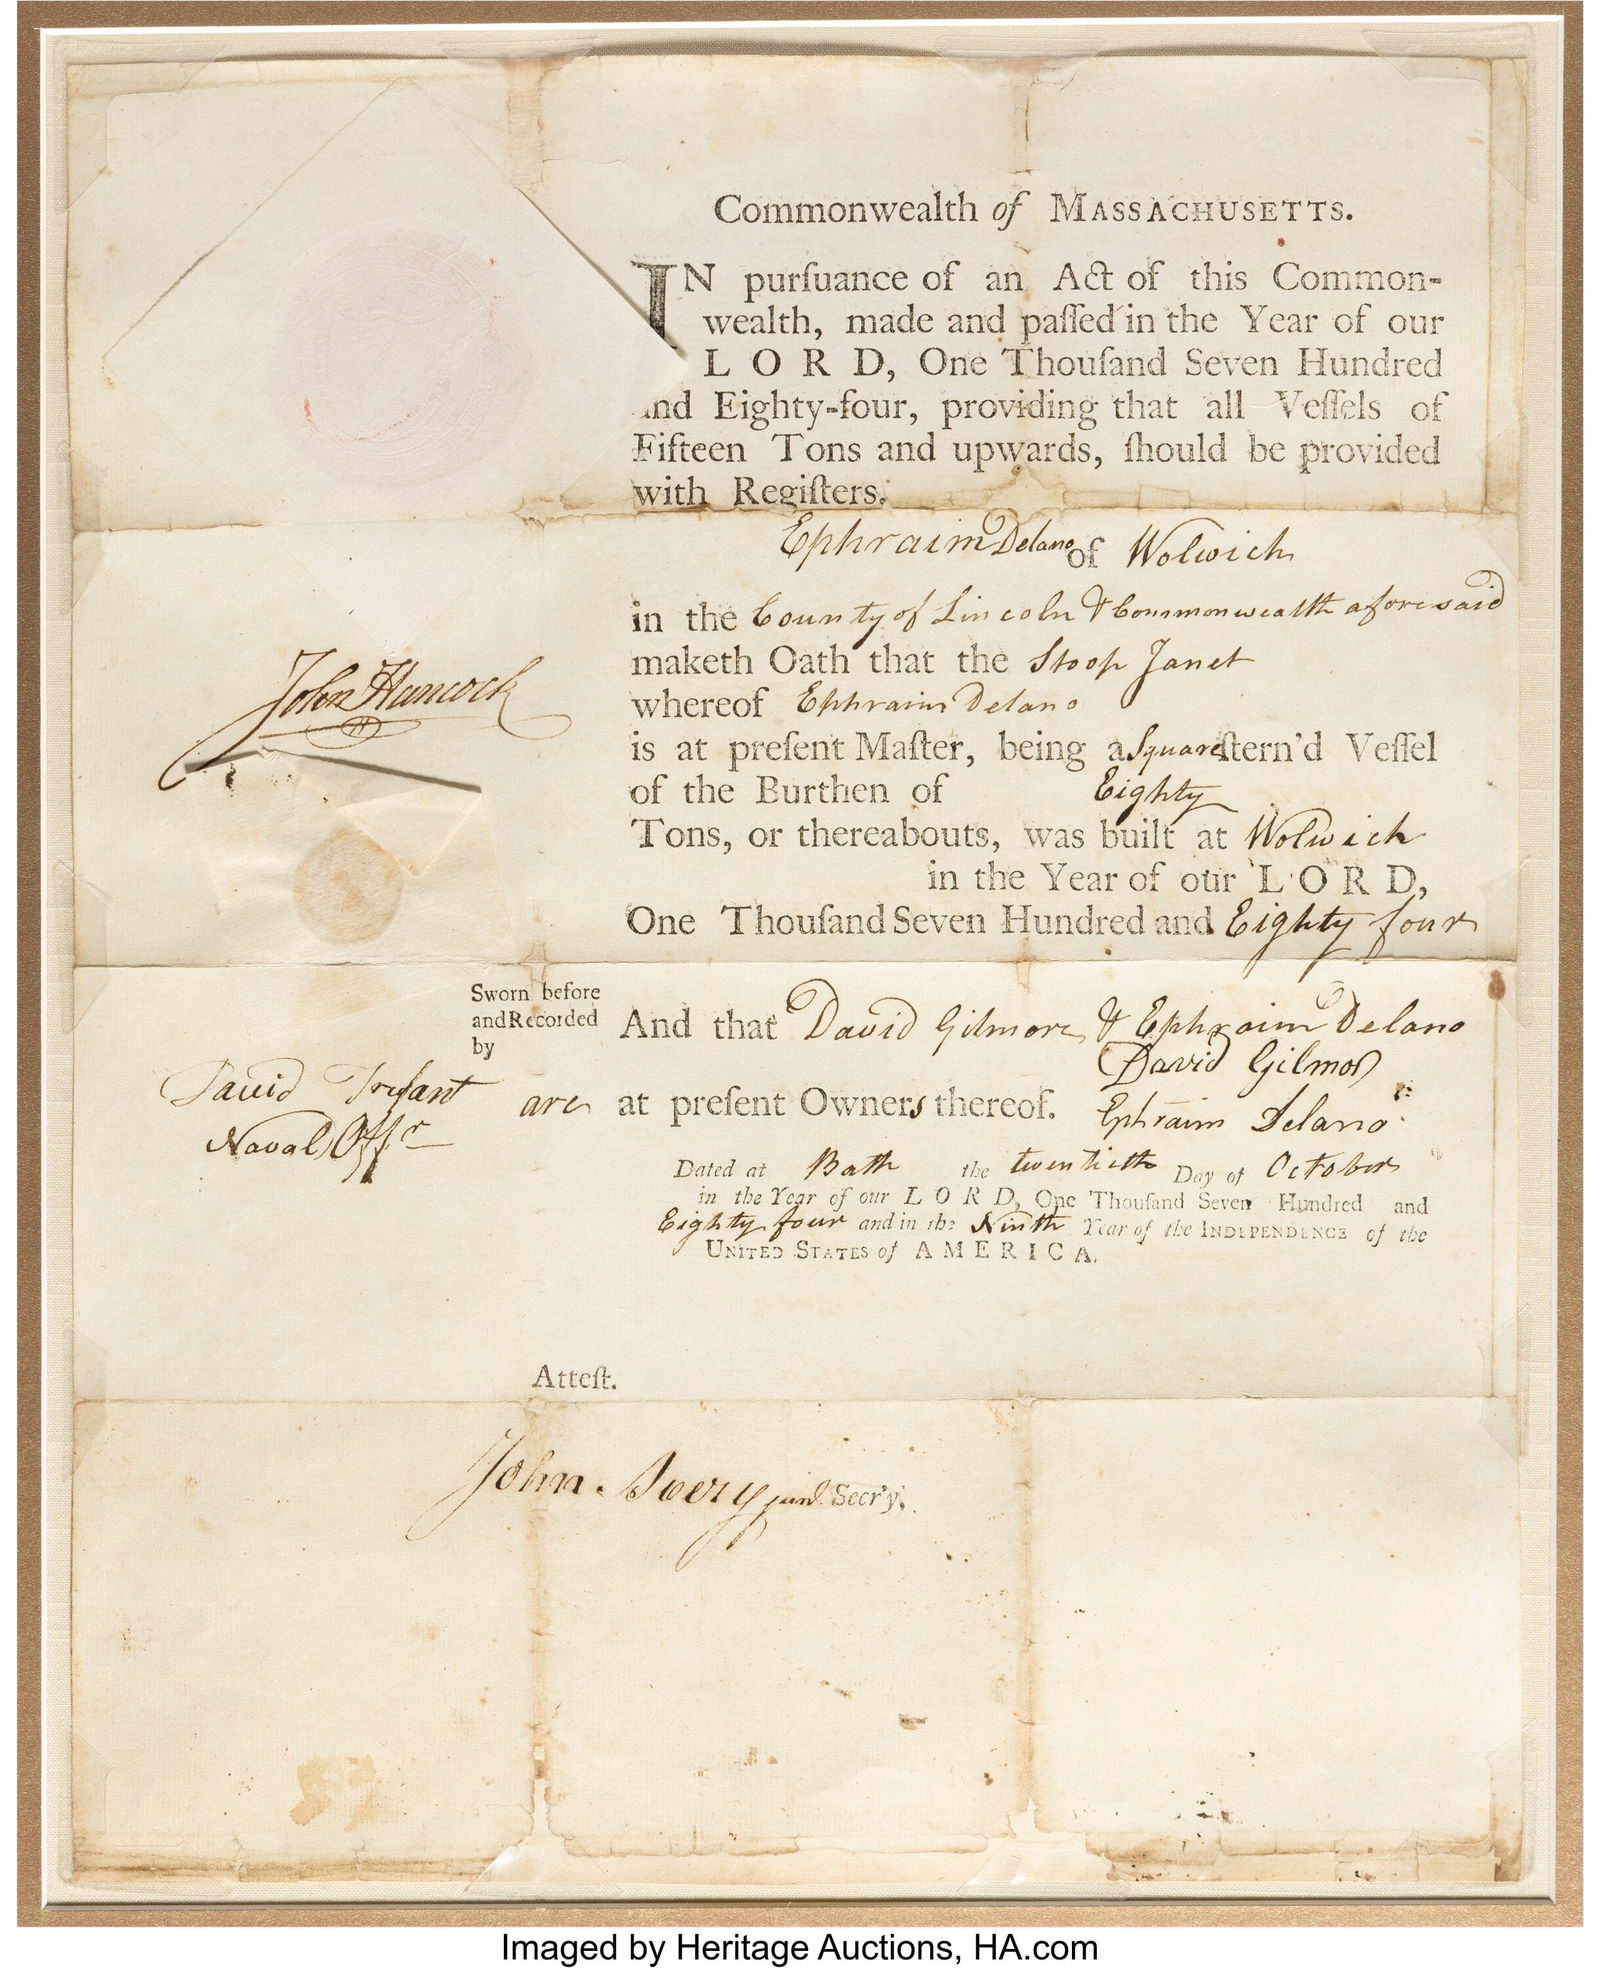 Commonwealth of MASSACHUSETTS.
IN purſuance of an Act of this Common-
wealth, made and paſſed in the Year of our
LORD, One Thouſand Seven Hundred
and Eighty-four, providing that all Veſſels of
Fifteen Tons and upwards, ſhould be provided
with Regiſters.
Ephraim Delano of Wolwich
in the County of Lincoln & Commonwealth aforesaid
maketh Oath that the Sloop Janet
whereof Ephraim Delano
is at preſent Maſter, being a Square ſtern'd Veſſel
of the Burthen of Eighty
Tons, or thereabouts, was built at Wolwich
in the Year of our LORD,
One Thouſand Seven Hundred and Eighty four
John Hancock
H
Sworn before
and Recorded
by
David Trufant
Naval Offr
And that David Gilmore & Ephraim Delano
David Gilmor
are at preſent Owners thereof.
Ephraim Delano
Dated at Bath the twentieth Day of October
in the Year of our LORD, One Thouſand Seven Hundred and
Eighty four and in the Ninth Year of the INDEPENDENCE of the
UNITED STATES of AMERICA.
Atteſt.
John Avery junr. Secr'y.
Imaged by Heritage Auctions, HA.com